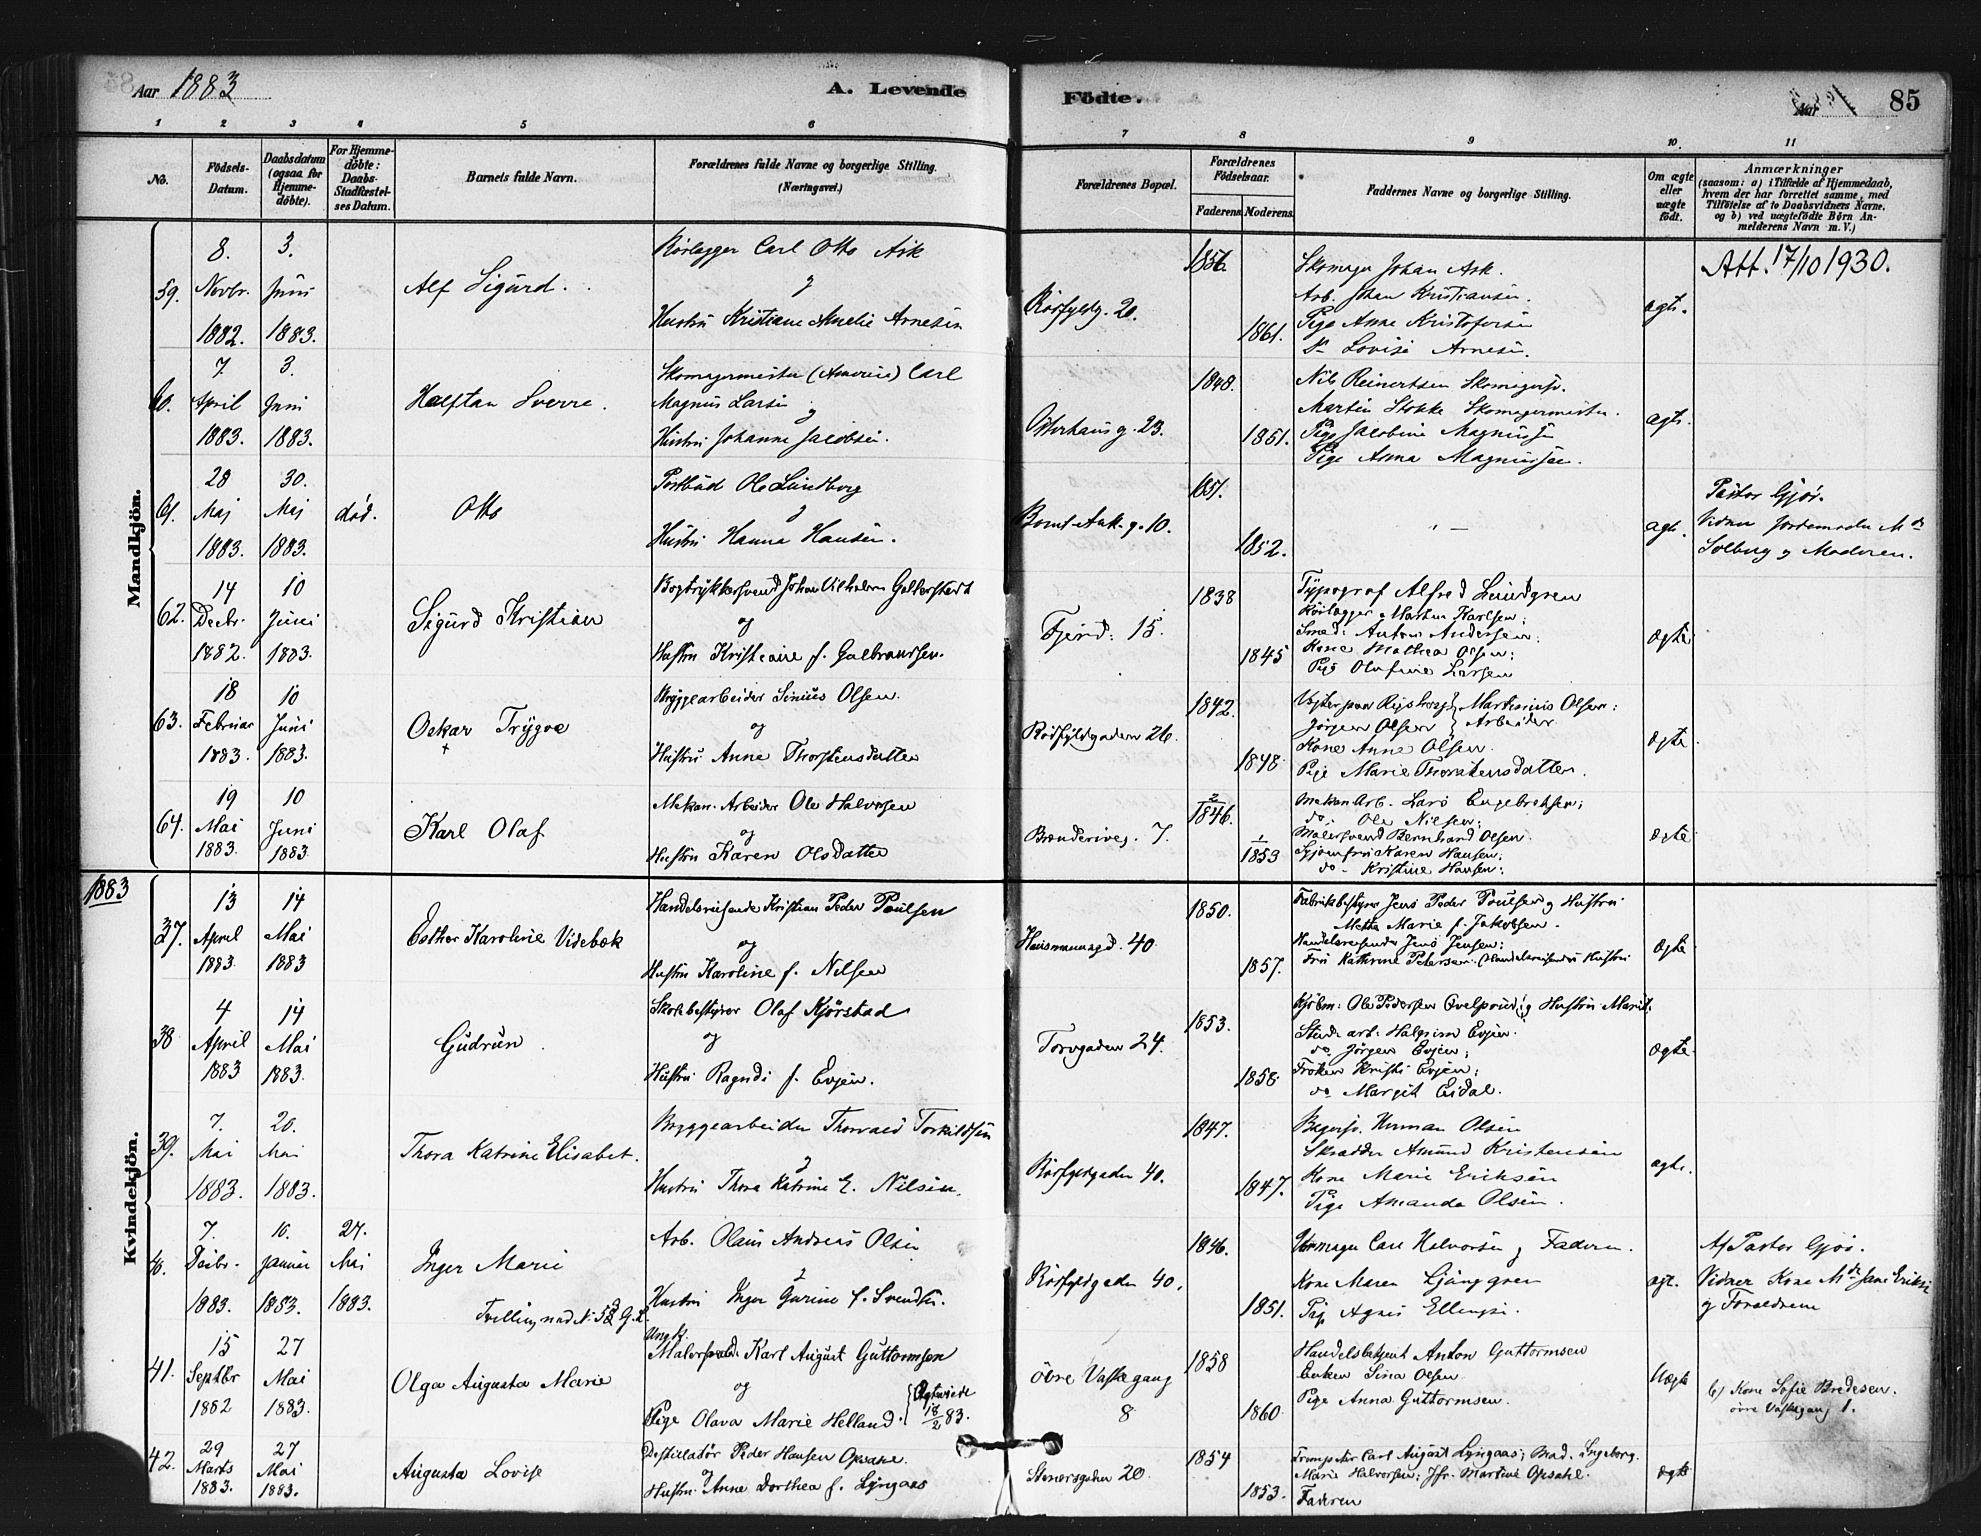 Aar 1883
A. Levende
Födte.
Aar
85
1 2 3 4 5 6 7 8 9 10. 11
No.
Födsels-Datum.
Daabsdatum (ogsaa for Hjemme-döbte).
For Hjemme-döbte: Daabs-Stadfæstel-ses Datum.
Barnets fulde Navn.
Forældrenes fulde Navne og borgerlige Stilling. (Næringsvei.)
Forældrenes Bopæl.
Forældrenes Födselsaar.
Faderens. Moderens.
Faddernes Navne og borgerlige Stilling.
Om ægte eller uægte födt.
Anmærkninger
(saasom: a) i Tilfælde af Hjemmedaab, hvem der har forrettet samme, med Tilföielse af to Daabsvidners Navne, og b) ved uægtefödte Börn An-melderens Navn m. V.)
Mandkjön.
59. 8. Novbr. 1882. 3. Juni 1883.
Alf Sigurd.
Rörlægger Carl Otto Ask
og
Hustru Kristiane Amelie Arnesen
Rörfyldg. 20.
1856. 1861.
Skomager Johan Ask.
Arb. Johan Kristiansen.
Pige Anne Kristofersen
Do Lovise Arnesen.
ægte.
Att. 17/10 1930.
60. 7. April 1883. 3. Juni 1883.
Halftan Sverre.
Skomagermester (Amerie) Carl
Magnus Larsen
og
Hustru Johanne Jacobsen.
Osterhausg. 23.
1848. 1851.
Nils Reinertsen Skomagersv.
Martin Stokke Skomagermester.
Pige Jacobine Magnussen
Pige Anna Magnussen.
ægte.
61. 28 Maj 1883. 30. Maj 1883. död.
Otto
Postbud Ole Lundborg
og
Hustru Hanna Hansen.
Bernt Ank. g. 10.
1851. 1852.
ægte.
Pastor Gjör.
Vidner Jordemoder Md
Solberg og Moderen.
62. 14 Decbr. 1882. 10 Juni 1883.
Sigurd Kristian
Bogtrykkersvend Johan Vilhelm Gallerstedt
og
Hustru Kristiane f. Gulbrandsen.
Fjerd: 15.
1838 1845
Typograf Alfred Lundgren
Rörlægger Martin Karlsen;
Smed: Anton Andersen;
Kone Mathea Olsen;
Pige Olufine Larsen
Ægte
63. 18 Februar 1883. 10 Juni 1883.
Oskar Trygve
+
Bryggearbeider Sinius Olsen.
og
Hustru Anne Thorstensdatter
Rödfyldgaden 26.
1842. 1848
Martinius Olsen:
Jörgen Olsen } Arbeider
Kone Anne Olsen.
Pige Marie Thorstensdatter.
Ægte
64. 19 Mai 1883. 10 Juni 1883.
Karl Olaf
Mekan. Arbeider Ole Halvorsen
og
Hustru Karen Olsdatter
Brænderivej. 7.
2/1846. 1/1853
Mekan Arb. Lars Engebretsen;
do. Ole Nilsen;
Malersvend Bernhard Olsen.
Jomfru Karen Hansen;
do - Kristine Hansen;
Ægte
1883
Kvindekjön.
37. 13 April 1883. 14 Mai 1883
Esther Karoline Videbæk
Handelsreisende Kristian Peder Poulsen
og
Hustru Karoline f. Nilsen
Hausmannsgd. 40
1850. 1857.
Fabrikbestyrer Jens Peder Poulsen og Hustru
Mette Marie f. Jakobsen.
Handelsreisende Jens Jensen;
Fru Kathrine Petersen. (Handelsreisendes Hustru
Ægte
38 4 April 1883 14 Mai 1883.
Gudrun
Skolebestyrer Olaf Kjörstad
og
Hustru Ragndi f. Evjen.
Torvgaden 24.
1853. 1858
Kjöbm: Ole Pedersen Qvelprud og Hustru Marit;
Stud: art: Halgrim Evjen.
do. Jörgen Evjen;
Fröken Kristi Evjen;
do Margit Eidal.
Ægte.
39. 7. Mai 1883. 20. Mai 1883.
Thora Katrine Elisabet.
Bryggearbeider Thorvald Torkildsen
og
Hustru Thora Katrine E. Nilsen.
Rörfyldgaden 40.
1847. 1847.
Bagersv. Herman Olsen
Skrædder Amund Kristensen
Kone Marie Eriksen
Pige Amanda Olsen.
ægte.
40. 7. Decbr. 1883. 10. Januar 1883. 27. Mai 1883.
Inger Marie
Tvilling med No 58 G.L.
Arb. Olaus Andreas Olsen
og
Hustru Inger Gurine f. Svends.
Rörfyldgaden 40.
1846. 1851.
Urmager Carl Halvorsen og Faderen.
Kone Maren Ljunggren
Pige Agnes Ellingsen.
ægt.
Af Pastor Gjör.
Vidner Kone Md Jane Eriksen
og Forældrene
41. 15 Septbr 1882 27 Mai 1883.
Olga Augusta Marie
Ungk.
Malersvend: Karl August Guttormsen
og
Pige Olava Marie Helland. { Ægteviede 18/2 83.
övre Vaskegang 8
1858 1860
Handelsbetjent Anton Guttormsen
Enken Lina Olsen
Pige Anna Guttormsen.
Uægte
b) Kone Sofie Bredesen.
övre Vaskegang 1.
42. 29 Marts 1883. 27 Mai 1883.
Augusta Lovise
Destillatör Peder Hansen Opsahl.
og
Hustru Anne Dorthea f. Lyngaas
Stenersgaden 20.
1854 1853.
Carl August Lyngaas; Mad. Ingeborg
Marie Halvorsen; Jfr. Martine Opsahl.
Faderen
Ægte